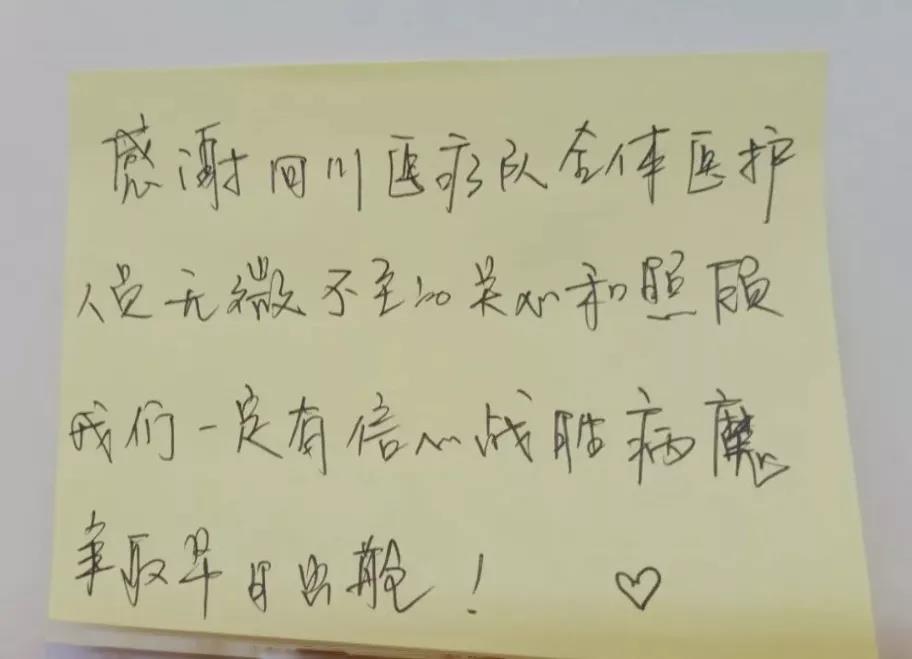 感谢四川医疗队全体医护
人员无微不至的关心和照顾
我们一定有信心战胜病魔
争取早日出舱！♡